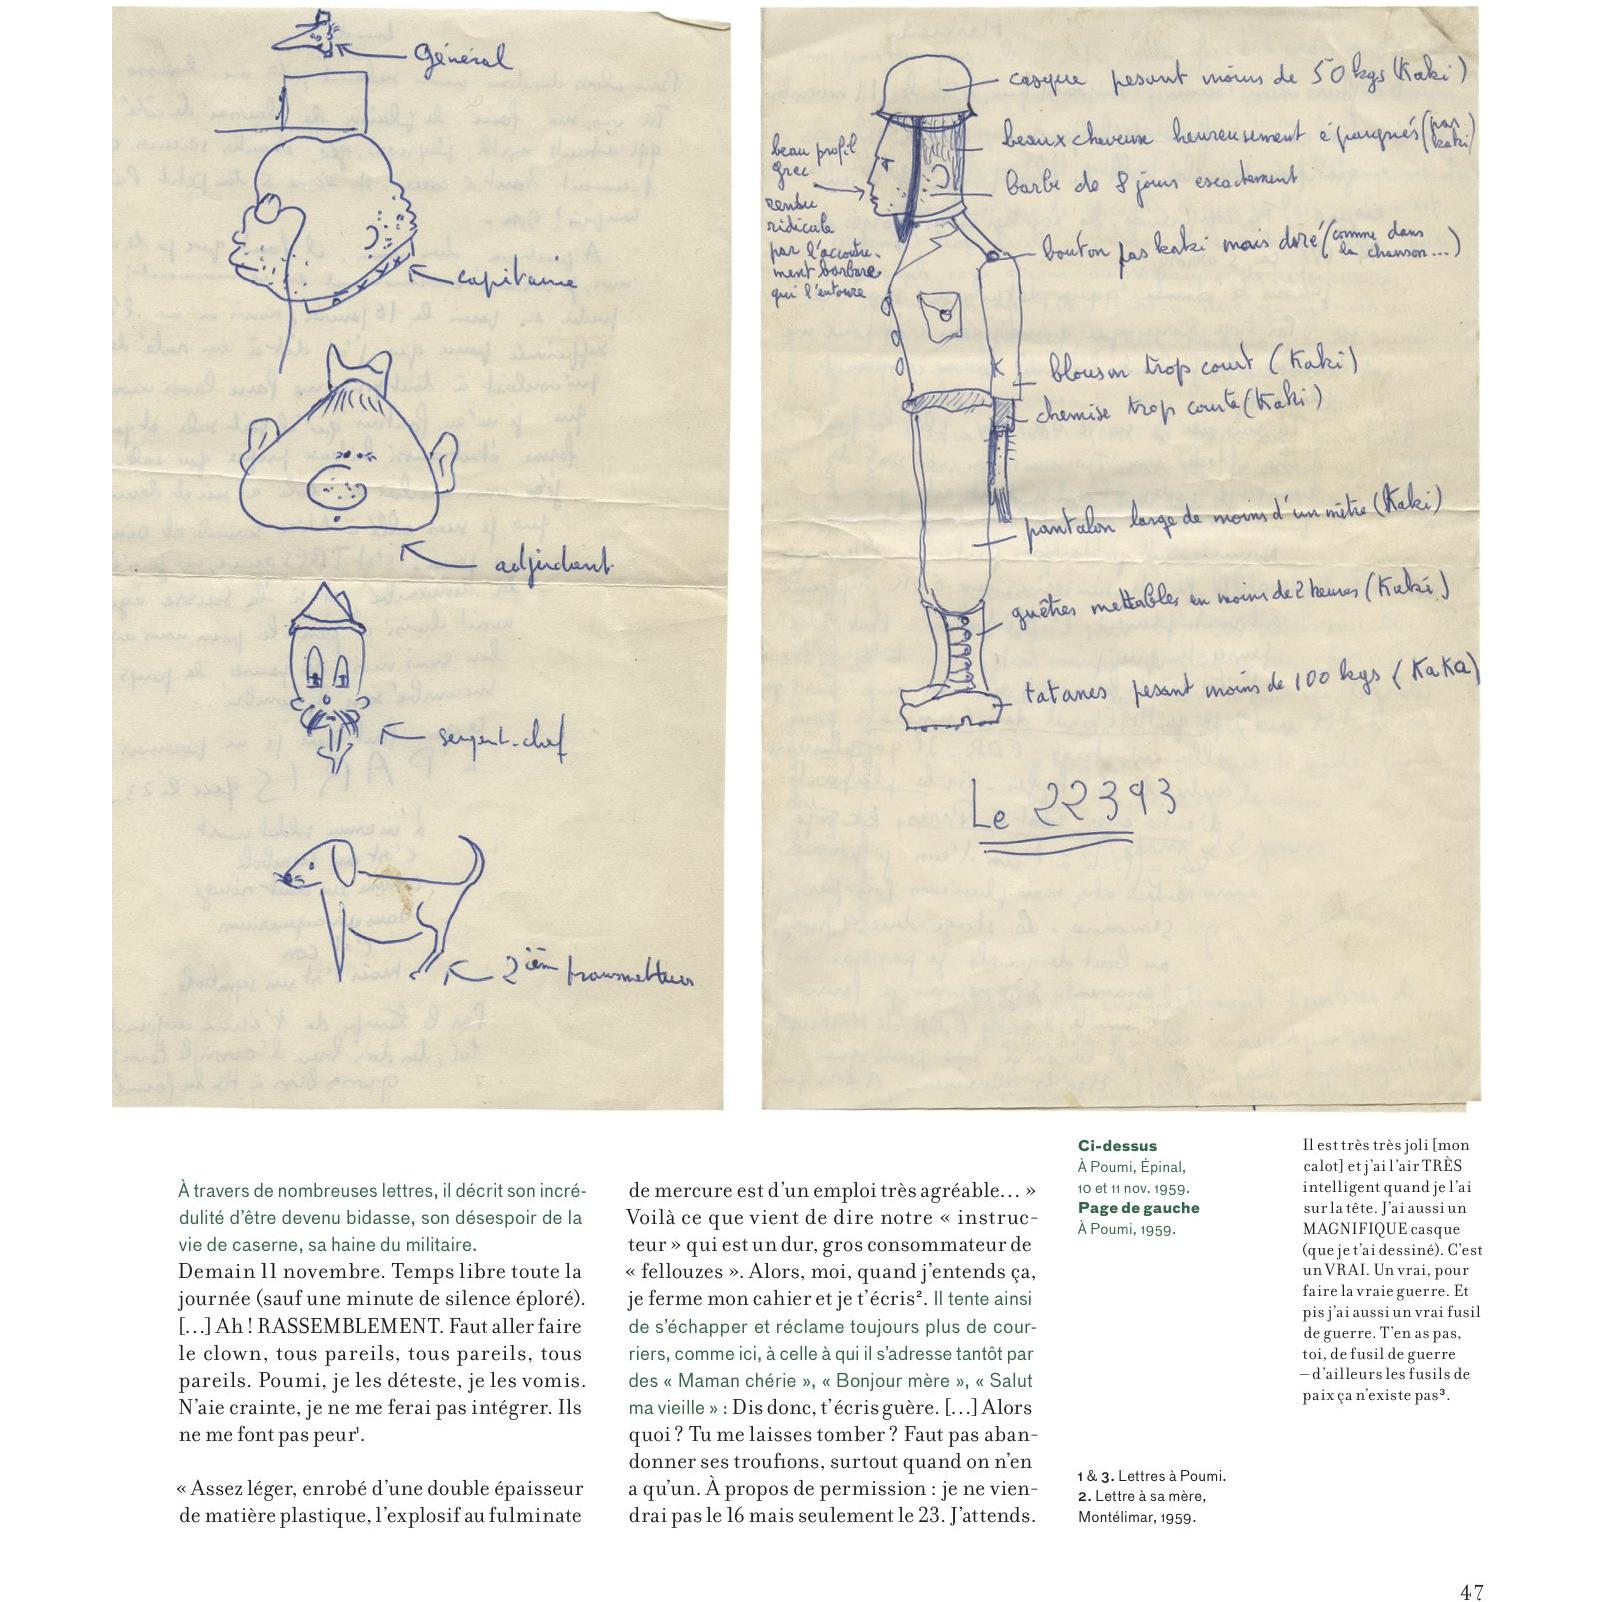 Général
capitaine
adjudant
sergent-chef
2ièm transmetteur
casque pesant moins de 50 kgs (Kaki)
beaux cheveux heureusement épargnés (pas kaki)
barbe de 8 jours exactement
beau profil
grec
rendu
ridicule
par l'accoutre-
ment barbare
qui l'entoure
bouton pas kaki mais doré (comme dans
la chanson...)
blouson trop court (Kaki)
chemise trop courte (Kaki)
pantalon large de moins d'un mètre (Kaki)
guêtres mettables en moins de 2 heures (Kaki)
tatanes pesant moins de 100 kgs (KaKa)
Le 22393
À travers de nombreuses lettres, il décrit son incré-
dulité d'être devenu bidasse, son désespoir de la
vie de caserne, sa haine du militaire.
Demain 11 novembre. Temps libre toute la
journée (sauf une minute de silence éploré).
[…] Ah ! RASSEMBLEMENT. Faut aller faire
le clown, tous pareils, tous pareils, tous
pareils. Poumi, je les déteste, je les vomis.
N'aie crainte, je ne me ferai pas intégrer. Ils
ne me font pas peur¹.
« Assez léger, enrobé d'une double épaisseur
de matière plastique, l'explosif au fulminate
de mercure est d'un emploi très agréable… »
Voilà ce que vient de dire notre « instruc-
teur » qui est un dur, gros consommateur de
« fellouzes ». Alors, moi, quand j'entends ça,
je ferme mon cahier et je t'écris². Il tente ainsi
de s'échapper et réclame toujours plus de cour-
riers, comme ici, à celle à qui il s'adresse tantôt par
des « Maman chérie », « Bonjour mère », « Salut
ma vieille » : Dis donc, t'écris guère. […] Alors
quoi ? Tu me laisses tomber ? Faut pas aban-
donner ses troufions, surtout quand on n'en
a qu'un. À propos de permission : je ne vien-
drai pas le 16 mais seulement le 23. J'attends.
Ci-dessus
À Poumi, Épinal,
10 et 11 nov. 1959.
Page de gauche
À Poumi, 1959.
Il est très très joli [mon
calot] et j'ai l'air TRÈS
intelligent quand je l'ai
sur la tête. J'ai aussi un
MAGNIFIQUE casque
(que je t'ai dessiné). C'est
un VRAI. Un vrai, pour
faire la vraie guerre. Et
pis j'ai aussi un vrai fusil
de guerre. T'en as pas,
toi, de fusil de guerre
– d'ailleurs les fusils de
paix ça n'existe pas³.
1 & 3. Lettres à Poumi.
2. Lettre à sa mère,
Montélimar, 1959.
47